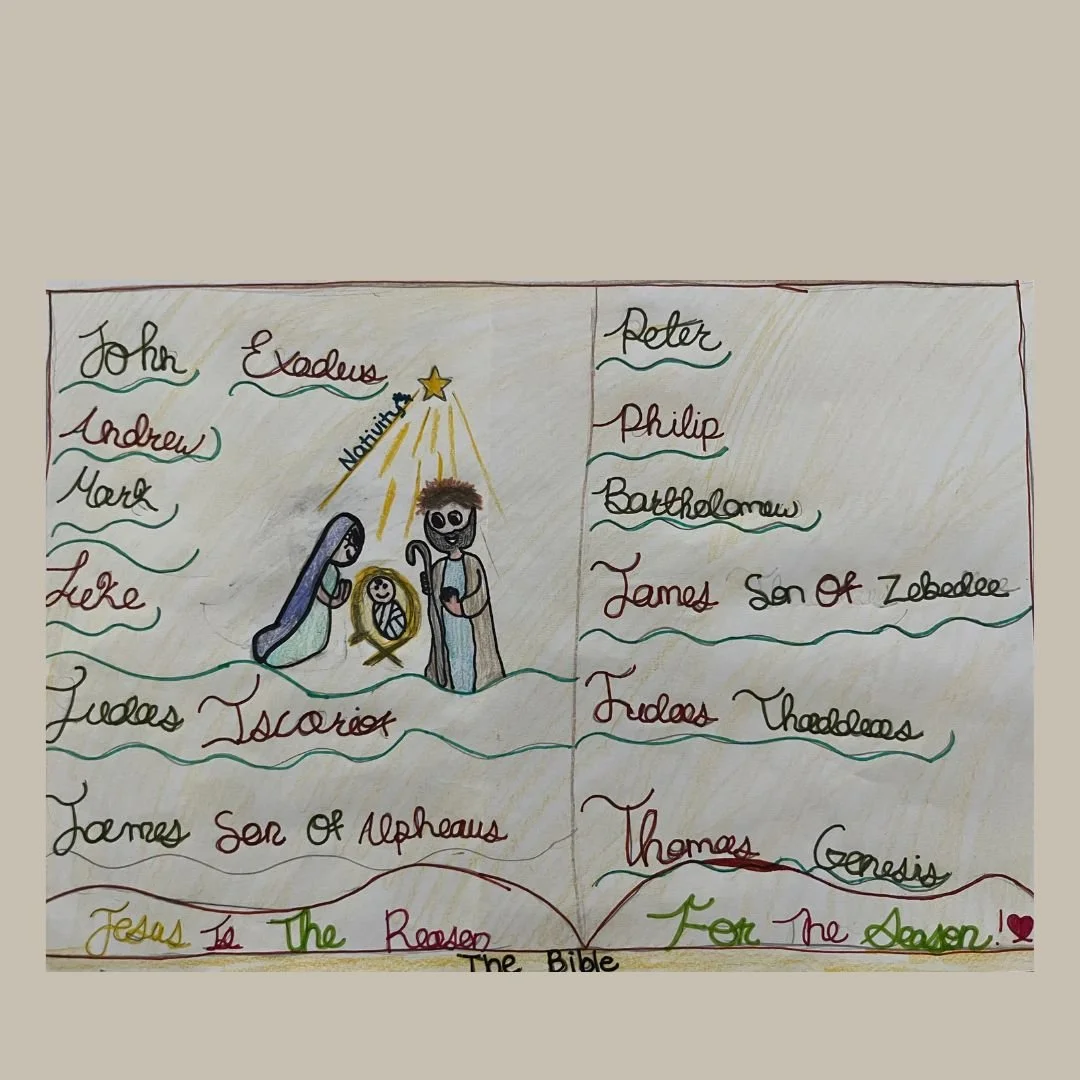 John Exodus
Nativity
Andrew
Mark
Luke
Judas Iscariot
James Son Of Alpheaus
Peter
Philip
Bartholomew
James Son Of Zebedee
Judas Thaddeas
Thomas Genesis
Jesus Is The Reason For The Season!
The Bible